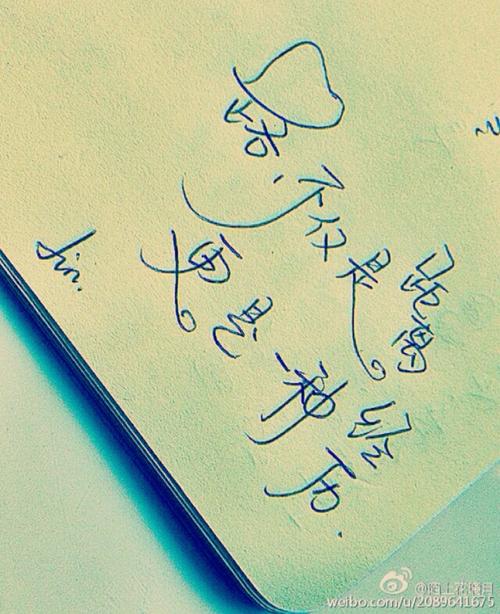 路,不仅是距离
更是一种经历.
Jin.
@陌上花随月
weibo.com/u/2089641675